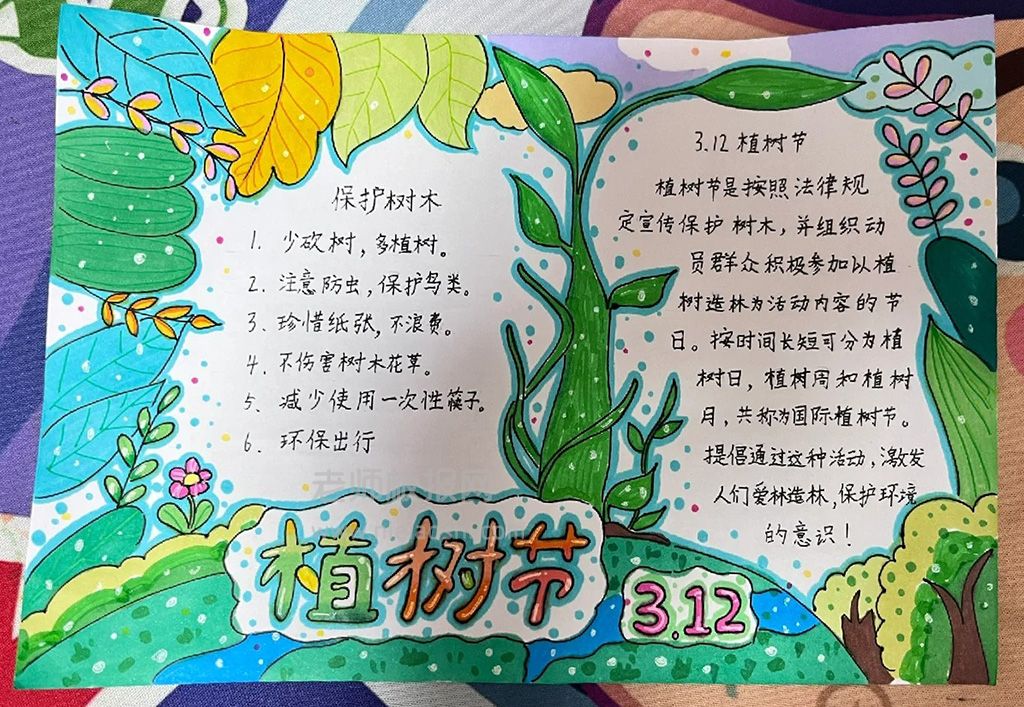 保护树木
1. 少砍树，多植树。
2. 注意防虫，保护鸟类。
3、珍惜纸张，不浪费。
4. 不伤害树木花草。
5、减少使用一次性筷子。
6、环保出行
3.12 植树节
植树节是按照法律规
定宣传保护树木，并组织动
员群众积极参加以植
树造林为活动内容的节
日。按时间长短可分为植
树日，植树周和植树
月，共称为国际植树节。
提倡通过这种活动，激发
人们爱林造林，保护环境
的意识！
植树节
3.12